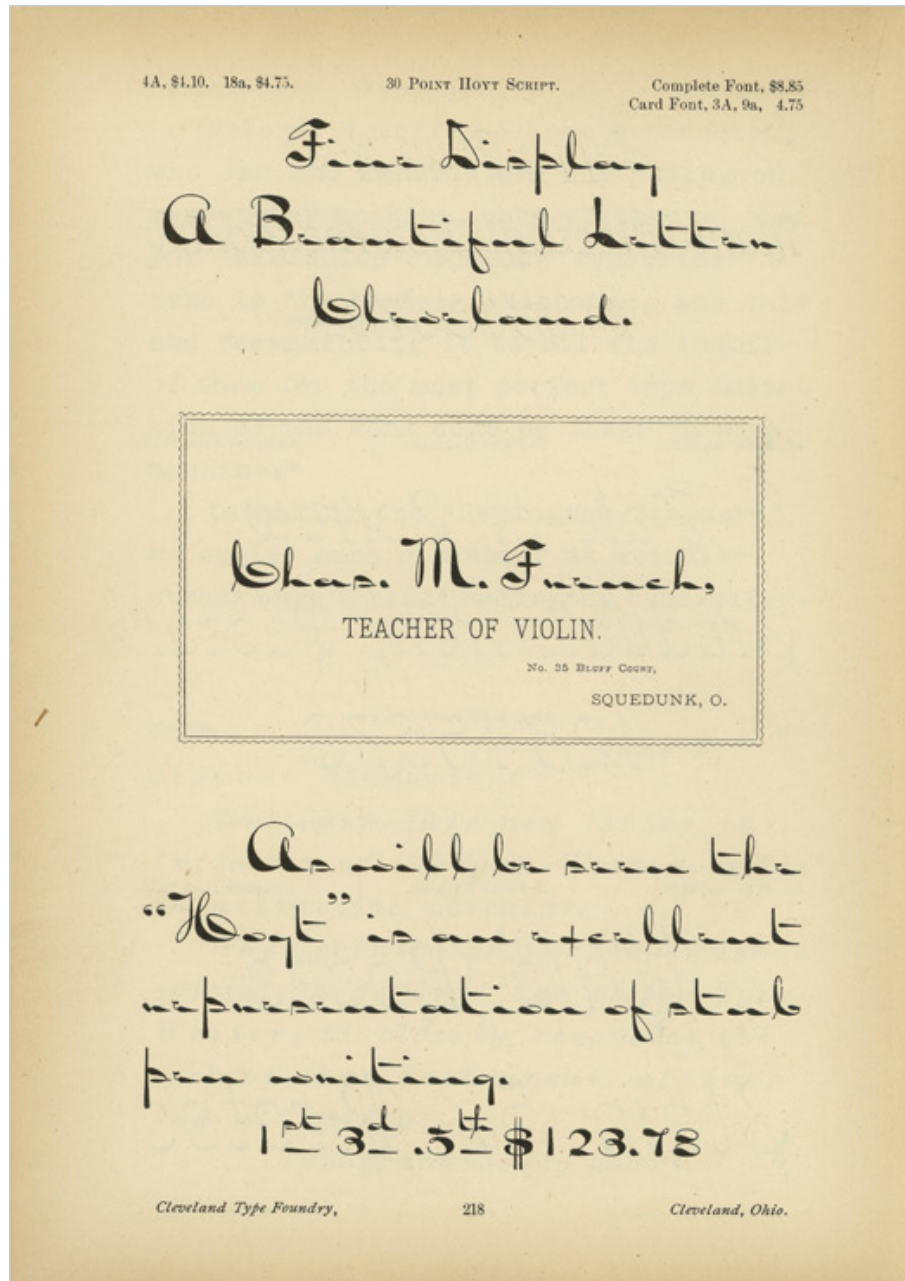 4A, $4.10. 18a, $4.75. 30 Point Hoyt Script. Complete Font, $8.85
Card Font, 3A, 9a, 4.75
Fine Display
A Beautiful Letter
Cleveland.
Chas. M. French,
TEACHER OF VIOLIN.
No. 35 Bluff Court,
SQUEDUNK, O.
As will be seen the
“Hoyt” is an excellent
representation of stub
pen writing.
1st 3d .5th $123.78
Cleveland Type Foundry, 218 Cleveland, Ohio.